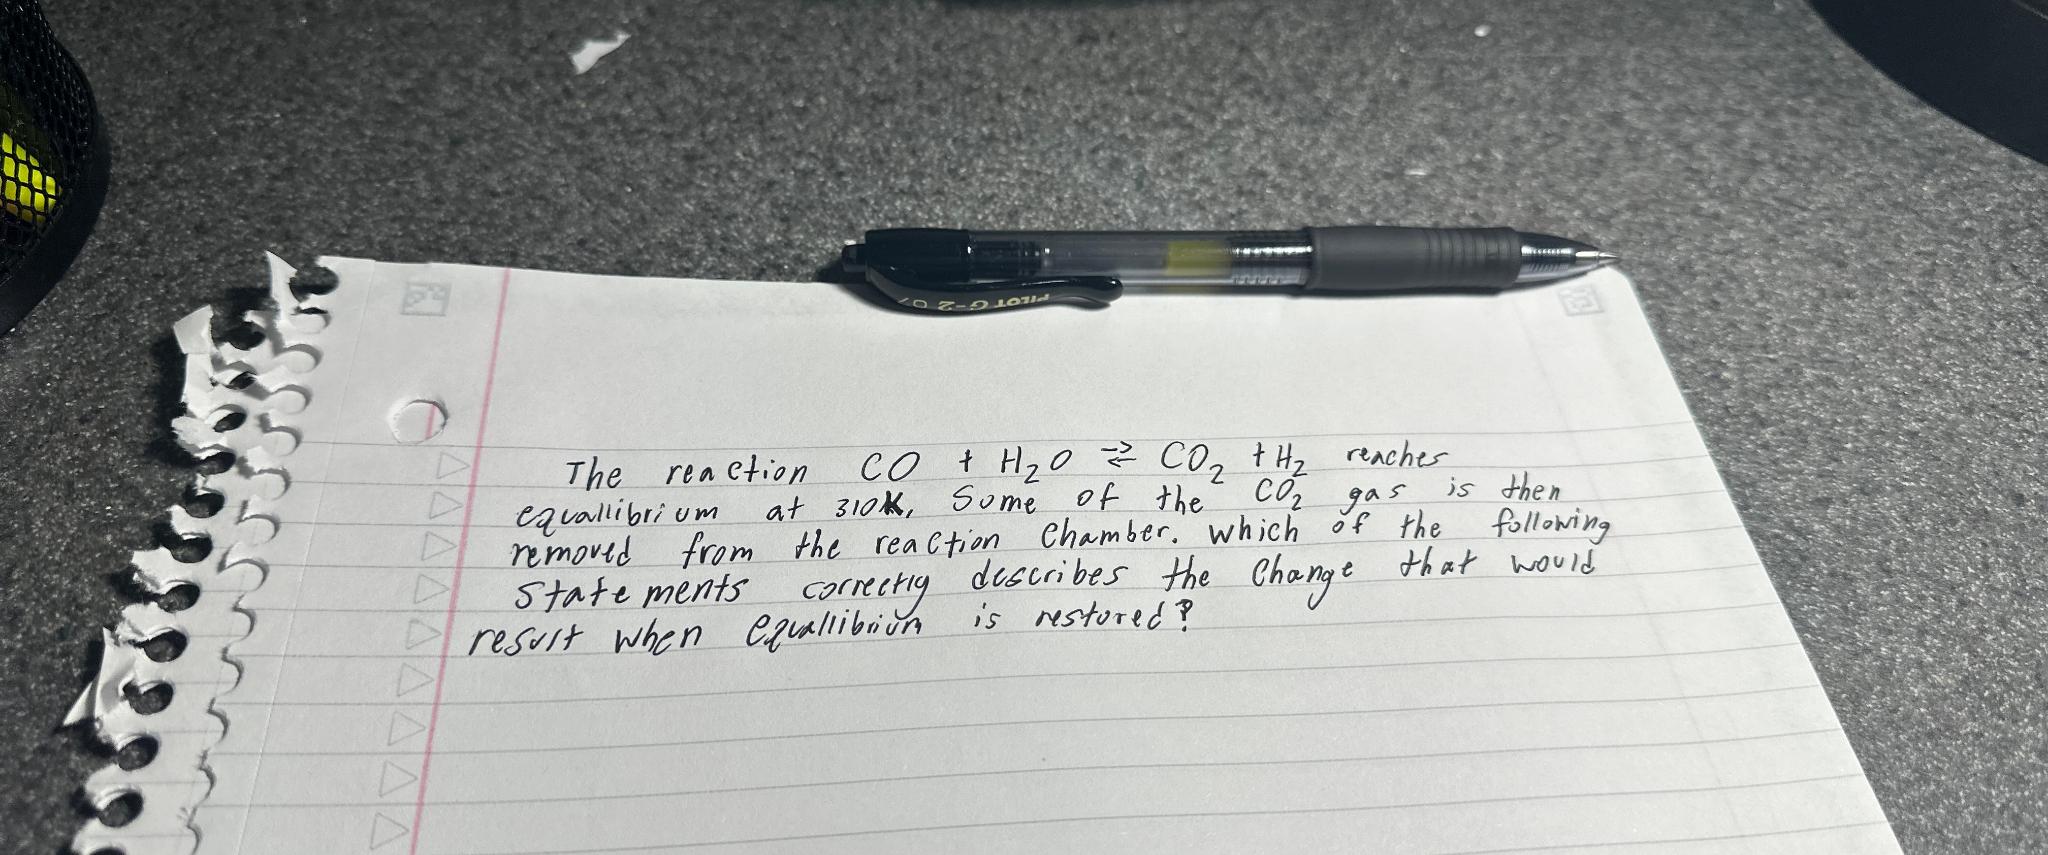 PILOT G-2 07
The reaction CO + H₂O ⇌ CO₂ + H₂ reaches
equallibrium at 310K. Some of the CO₂ gas is then
removed from the reaction Chamber. Which of the following
statements correctly describes the Change that would
result when equallibrium is restored?